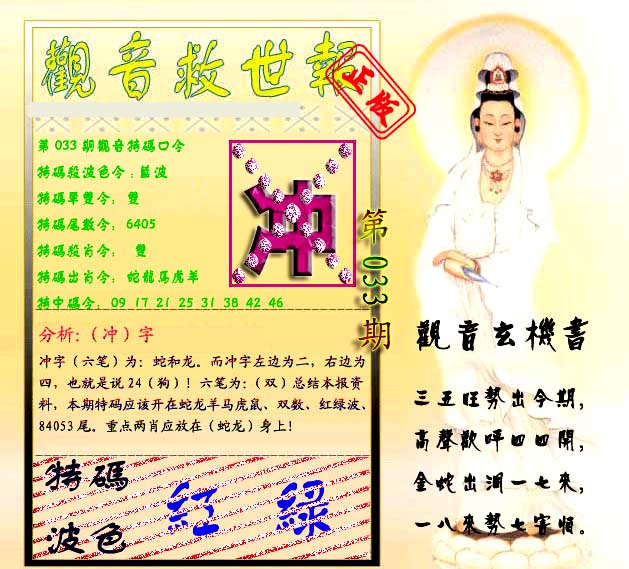 觀音救世報
正版
第 033 期觀音特碼口令
特碼殺波色令：藍波
特碼單雙令： 雙
特碼尾數令： 6405
特碼殺肖令： 雙
特碼出肖令： 蛇龍馬虎羊
特中碼令： 09 17 21 25 31 38 42 46
冲
第 033 期
分析:（冲）字
冲字（六笔）为：蛇和龙。而冲字左边为二，右边为
四，也就是说24（狗）！六笔为：（双）总结本报资
料，本期特码应该开在蛇龙羊马虎鼠、双数、红绿波、
84053 尾。重点两肖应放在（蛇龙）身上！
特碼
波色
紅 綠
觀音玄機書
三五旺勢出今期，
高聲歡呼四四開，
金蛇出洞一七來，
一八來勢七客順。